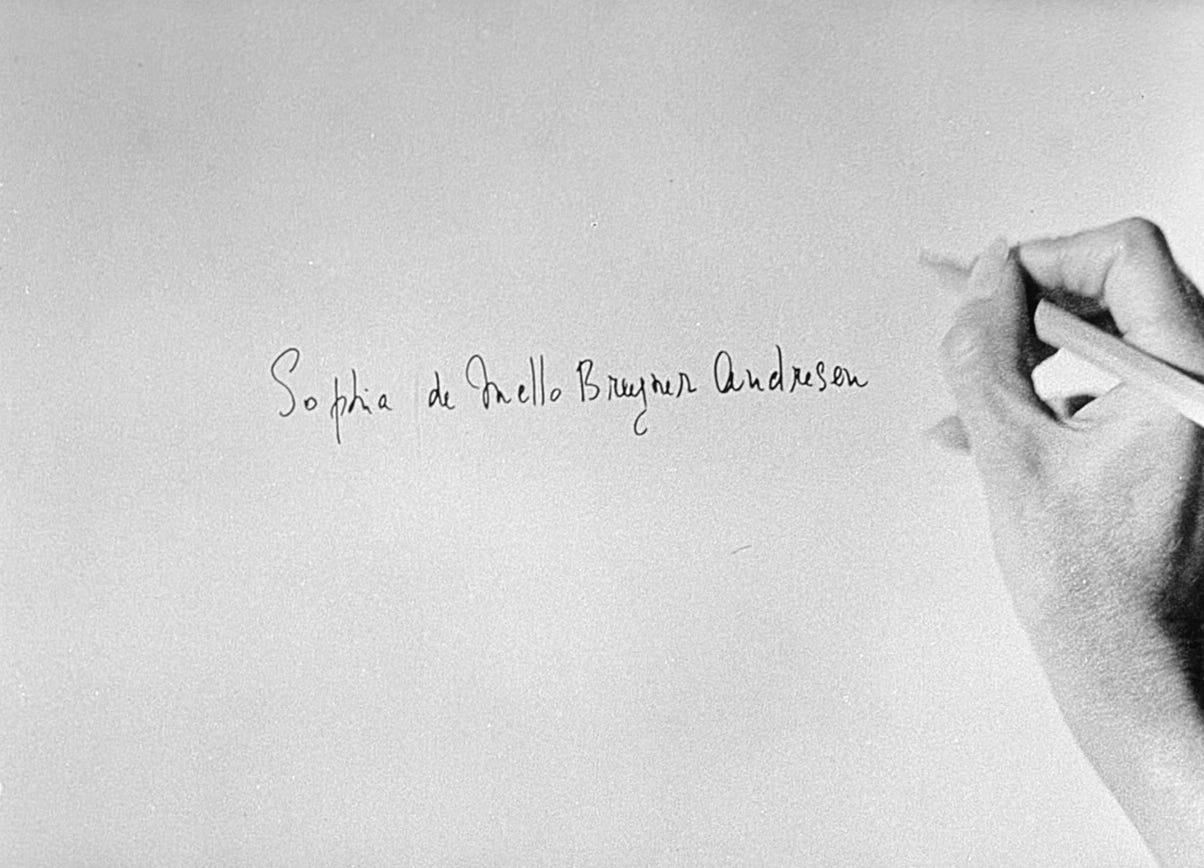 Sophia de Mello Breyner Andresen